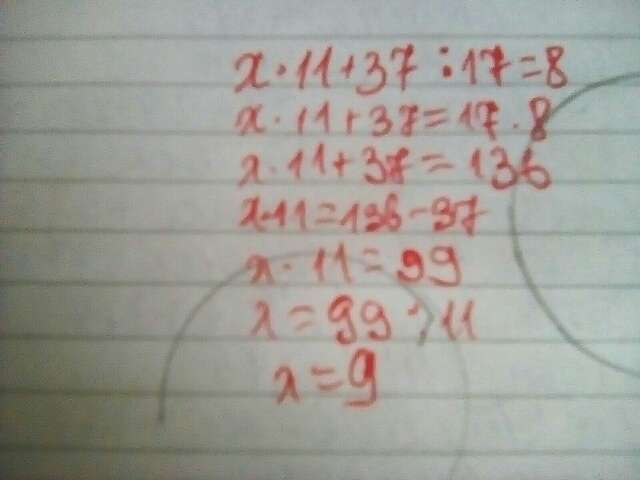 x·11+37:17=8
x·11+37=17·8
x·11+37=136
x·11=136-37
x·11=99
x=99:11
x=9